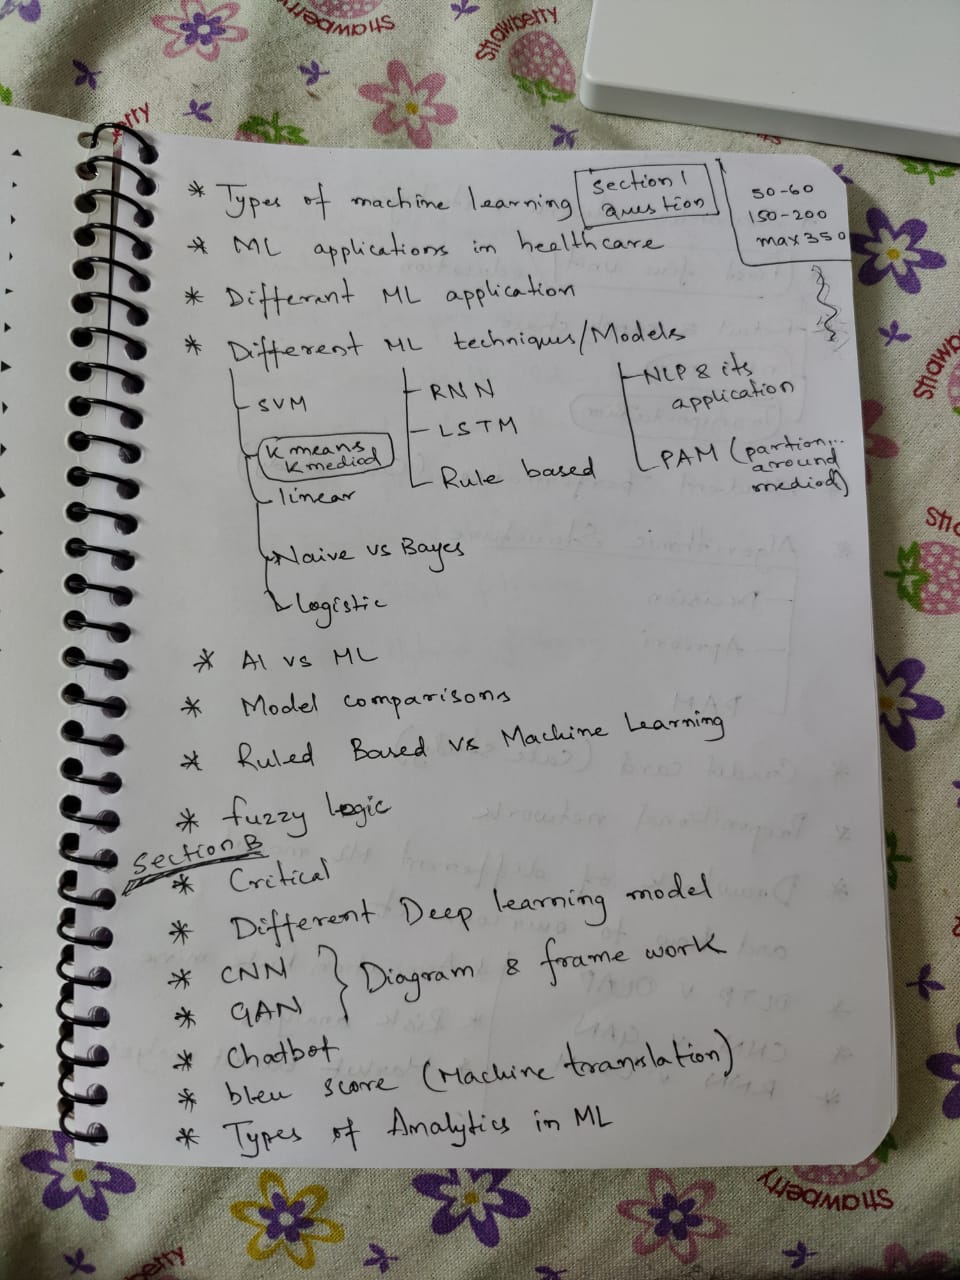 * Types of machine learning
section 1
question
50-60
150-200
max 350
* ML applications in healthcare
* Different ML application
* Different ML techniques/Models
SVM
K means
K mediod
linear
Naive vs Bayes
Logistic
RNN
LSTM
Rule based
NLP & its
application
PAM (partion...
around
mediod)
* AI vs ML
* Model comparisons
* Ruled Based vs Machine Learning
* fuzzy Logic
Section B
* Critical
* Different Deep learning model
* CNN
* GAN
Diagram & frame work
* Chatbot
* bleu score (Machine translation)
* Types of Analytics in ML
strawberry
strawberry
strawberry